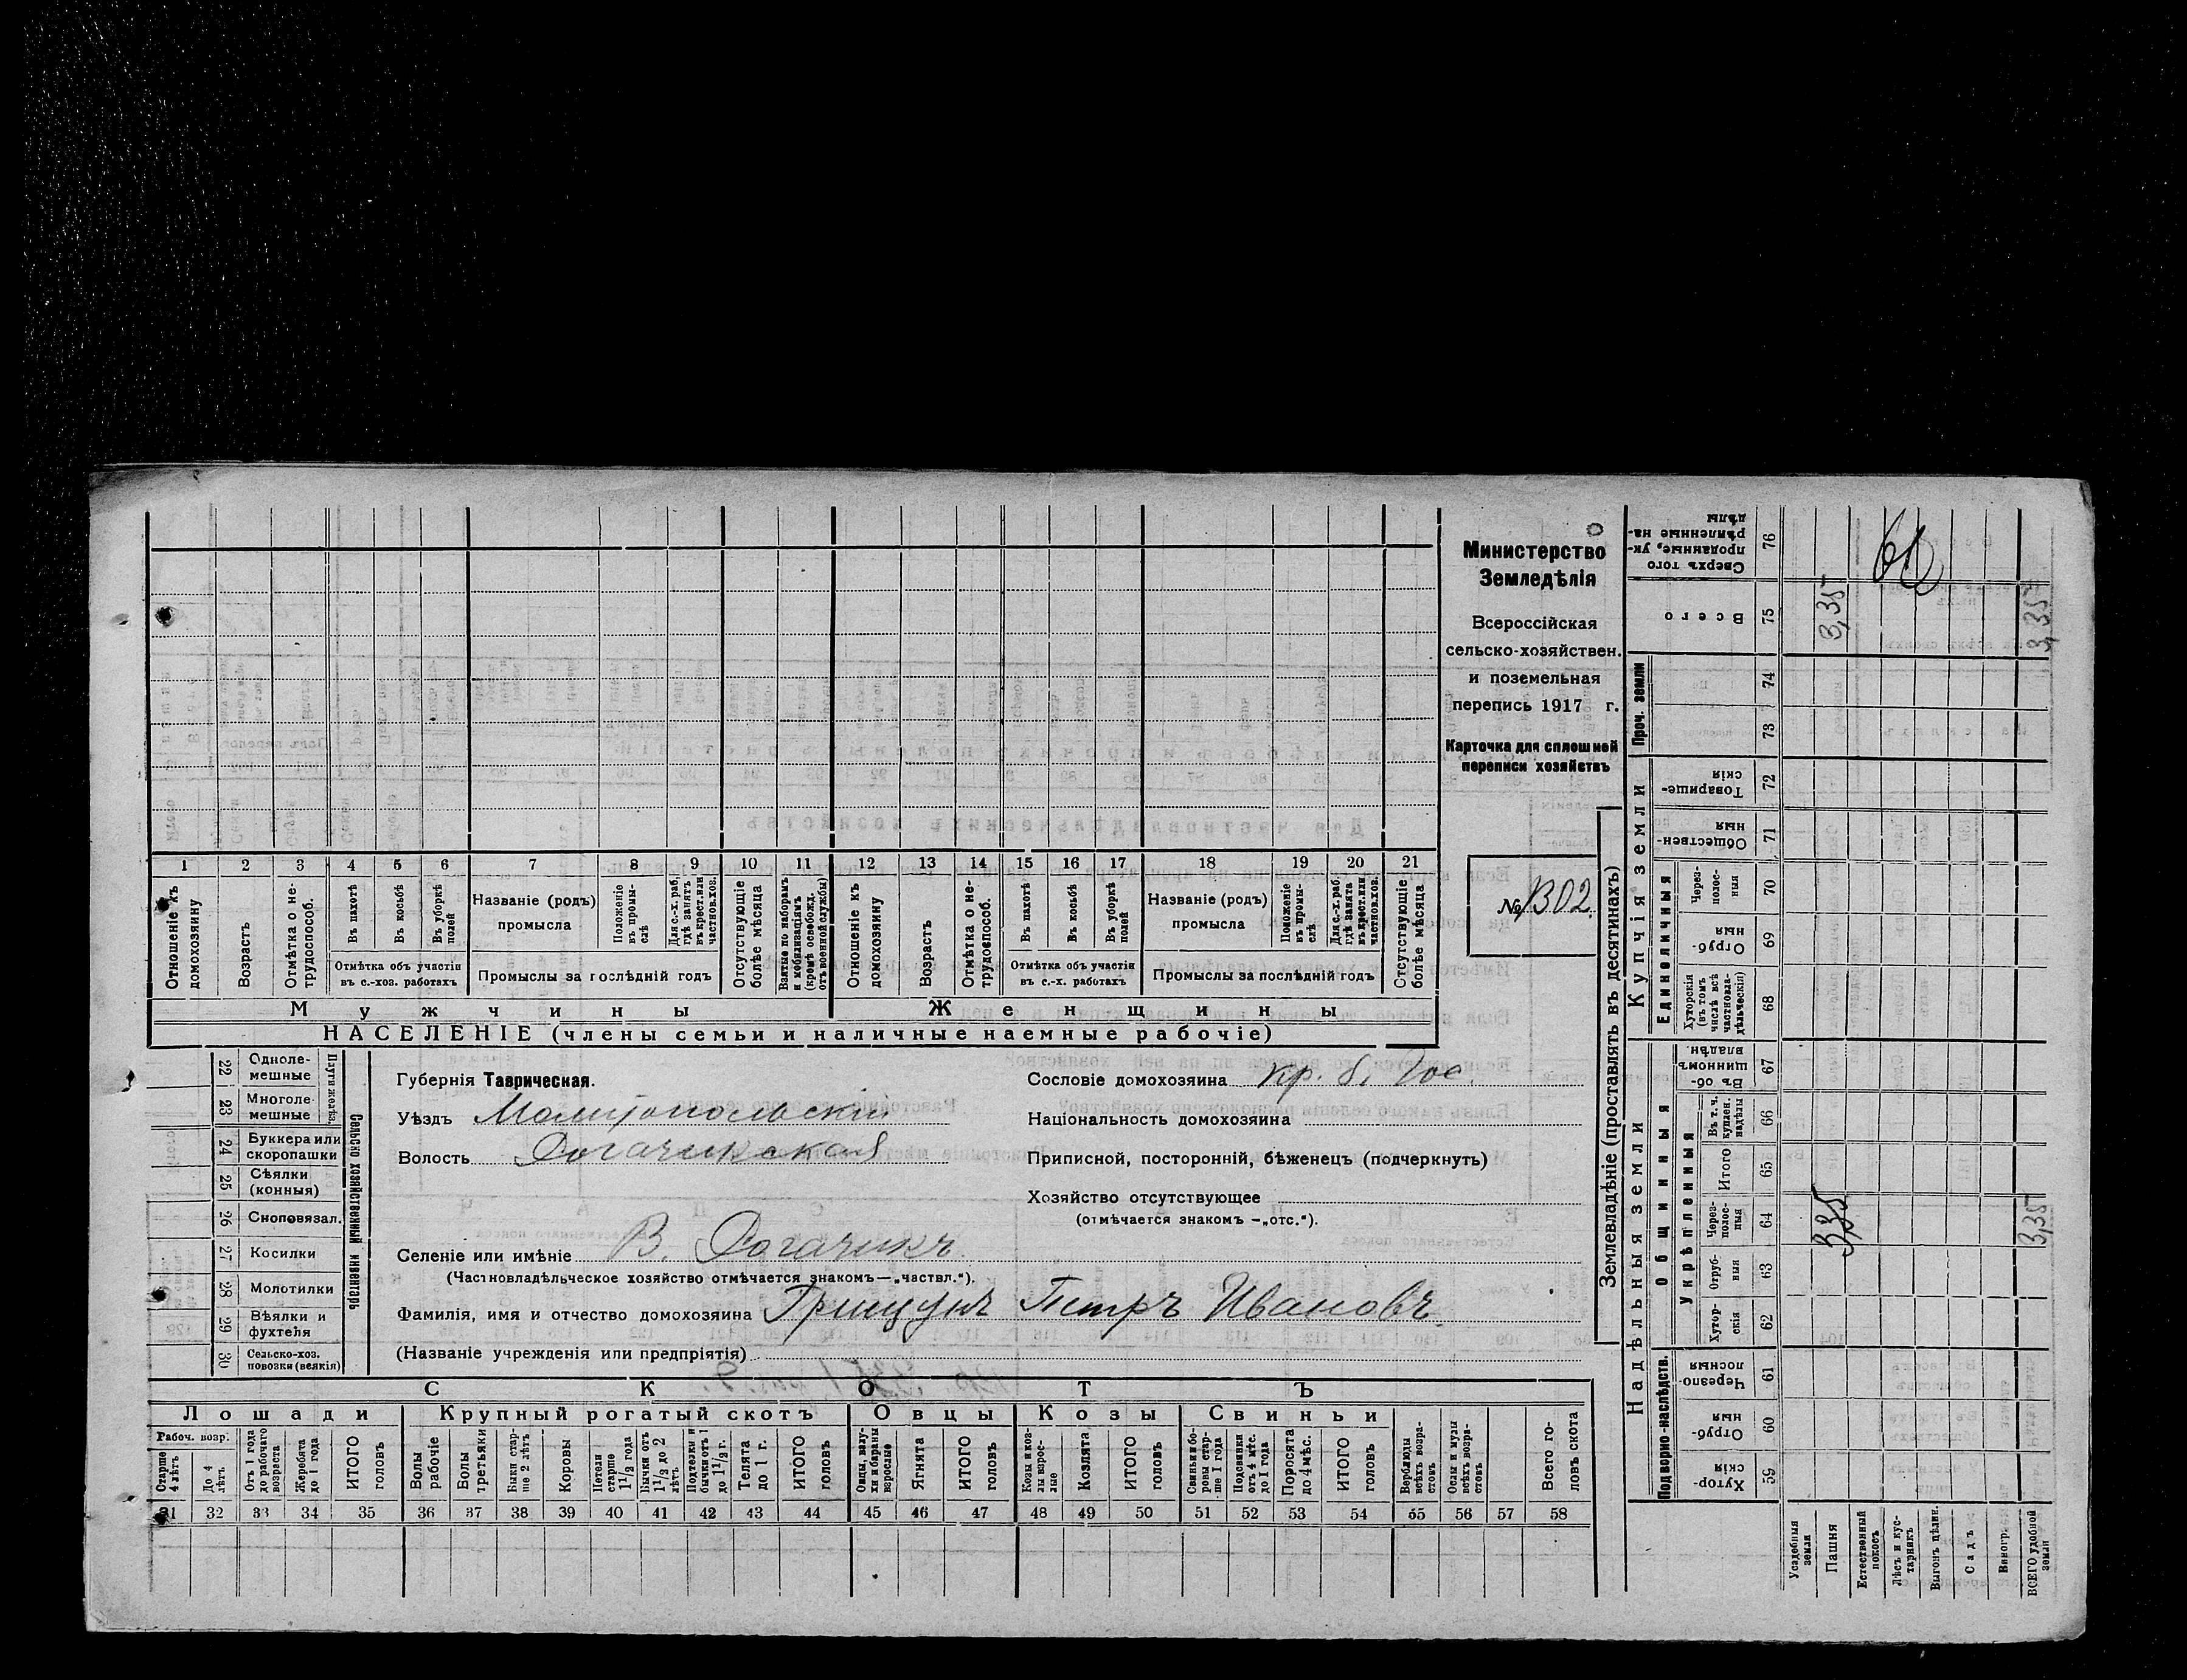 Министерство
Земледѣлія
Всероссійская
сельско-хозяйствен.
и поземельная
перепись 1917 г.
Карточка для сплошной
переписи хозяйствъ
№ 1302
1 2 3 4 5 6 7 8 9 10 11 12 13 14 15 16 17 18 19 20 21
Отношеніе къ домохозяину
Возрастъ
Отмѣтка о нетрудоспособ.
Въ пахотѣ
Въ косьбѣ
Въ уборкѣ полей
Отмѣтка объ участіи въ с.-хоз. работахъ
Названіе (родъ) промысла
Положеніе въ промыслѣ
Для с.-х. раб. гдѣ занятъ въ крест. или частнов. хоз.
Промыслы за послѣдній годъ
Отсутствующіе болѣе мѣсяца
Взятые по наборамъ и мобилизаціямъ (кромѣ освобожд. отъ военной службы)
Отношеніе къ домохозяину
Возрастъ
Отмѣтка о нетрудоспособ.
Въ пахотѣ
Въ косьбѣ
Въ уборкѣ полей
Отмѣтка объ участіи въ с.-х. работахъ
Названіе (родъ) промысла
Положеніе въ промыслѣ
Для с.-х. раб. гдѣ занята въ крест. или частнов. хоз.
Промыслы за послѣдній годъ
Отсутствующіе болѣе мѣсяца
Мужчины Женщины
НАСЕЛЕНІЕ (члены семьи и наличные наемные рабочіе)
Сельско хозяйственный инвентарь
Плуги желѣз.
22 Однолемешные
23 Многолемешные
24 Буккера или скоропашки
25 Сѣялки (конныя)
26 Сноповязал.
27 Косилки
28 Молотилки
29 Вѣялки и фухтеля
30 Сельско-хоз. повозки (всякія)
Губернія Таврическая.
Уѣздъ Мелитопольскій
Волость Рогачикская
Сословіе домохозяина кр. б. Гос.
Національность домохозяина
Приписной, посторонній, бѣженецъ (подчеркнуть)
Хозяйство отсутствующее
(отмѣчается знакомъ —„отс.“).
Селеніе или имѣніе В. Рогачикъ
(Частновладѣльческое хозяйство отмѣчается знакомъ—„частвл.“).
Фамилія, имя и отчество домохозяина Грицуня Петръ Ивановъ.
(Названіе учрежденія или предпріятія)
СКОТЪ
Лошади Крупный рогатый скотъ Овцы Козы Свиньи
Рабоч. возр.
Старше 4 лѣтъ
До 4 лѣтъ
Отъ 1 года до рабочаго возраста
Жеребята до 1 года
ИТОГО головъ
Волы рабочіе
Волы третьяки
Быки старше 2 лѣтъ
Коровы
Нетели старше 1½ года
Бычки отъ 1½ до 2 лѣтъ
Подтелки и бычки отъ 1 до 1½ г.
Телята до 1 г.
ИТОГО головъ
Овцы, валухи и бараны взрослые
Ягнята
ИТОГО головъ
Козы и козлы взрослые
Козлята
ИТОГО головъ
Свиньи и боровы старше 1 года
Подсвинки отъ 4 мѣс. до 1 года
Поросята до 4 мѣс.
ИТОГО головъ
Верблюды всѣхъ возрастовъ
Ослы и мулы всѣхъ возрастовъ
Всего головъ скота
31 32 33 34 35 36 37 38 39 40 41 42 43 44 45 46 47 48 49 50 51 52 53 54 55 56 57 58
Землевладѣніе (проставлять въ десятинахъ)
Надѣльныя земли
Купчія земли
Проч. земли
Подворно-наслѣдств.
Общинныя
Укрѣпленныя
Единоличныя
Сверхъ того проданные, укрѣпленные надѣлы 76
Всего 75 3,35 3,35
74
73
Товарищескія 72
Общественныя 71
Черезполосныя 70
Отрубныя 69
Хуторскія (въ томъ числѣ всѣ частновладѣльческія) 68
Въ общинномъ владѣн. 67
Въ т. ч. куплен. надѣлы 66
Итого 65
Черезполосныя 64 3,35 3,35
Отрубныя 63
Хуторскія 62
Черезполосныя 61
Отрубныя 60
Хуторскія 59
Усадебныя земли
Пашня
Естественный покосъ
Лѣсъ и кустарникъ
Выгонъ цѣлин.
Садъ
Виногр.
ВСЕГО удобной земли